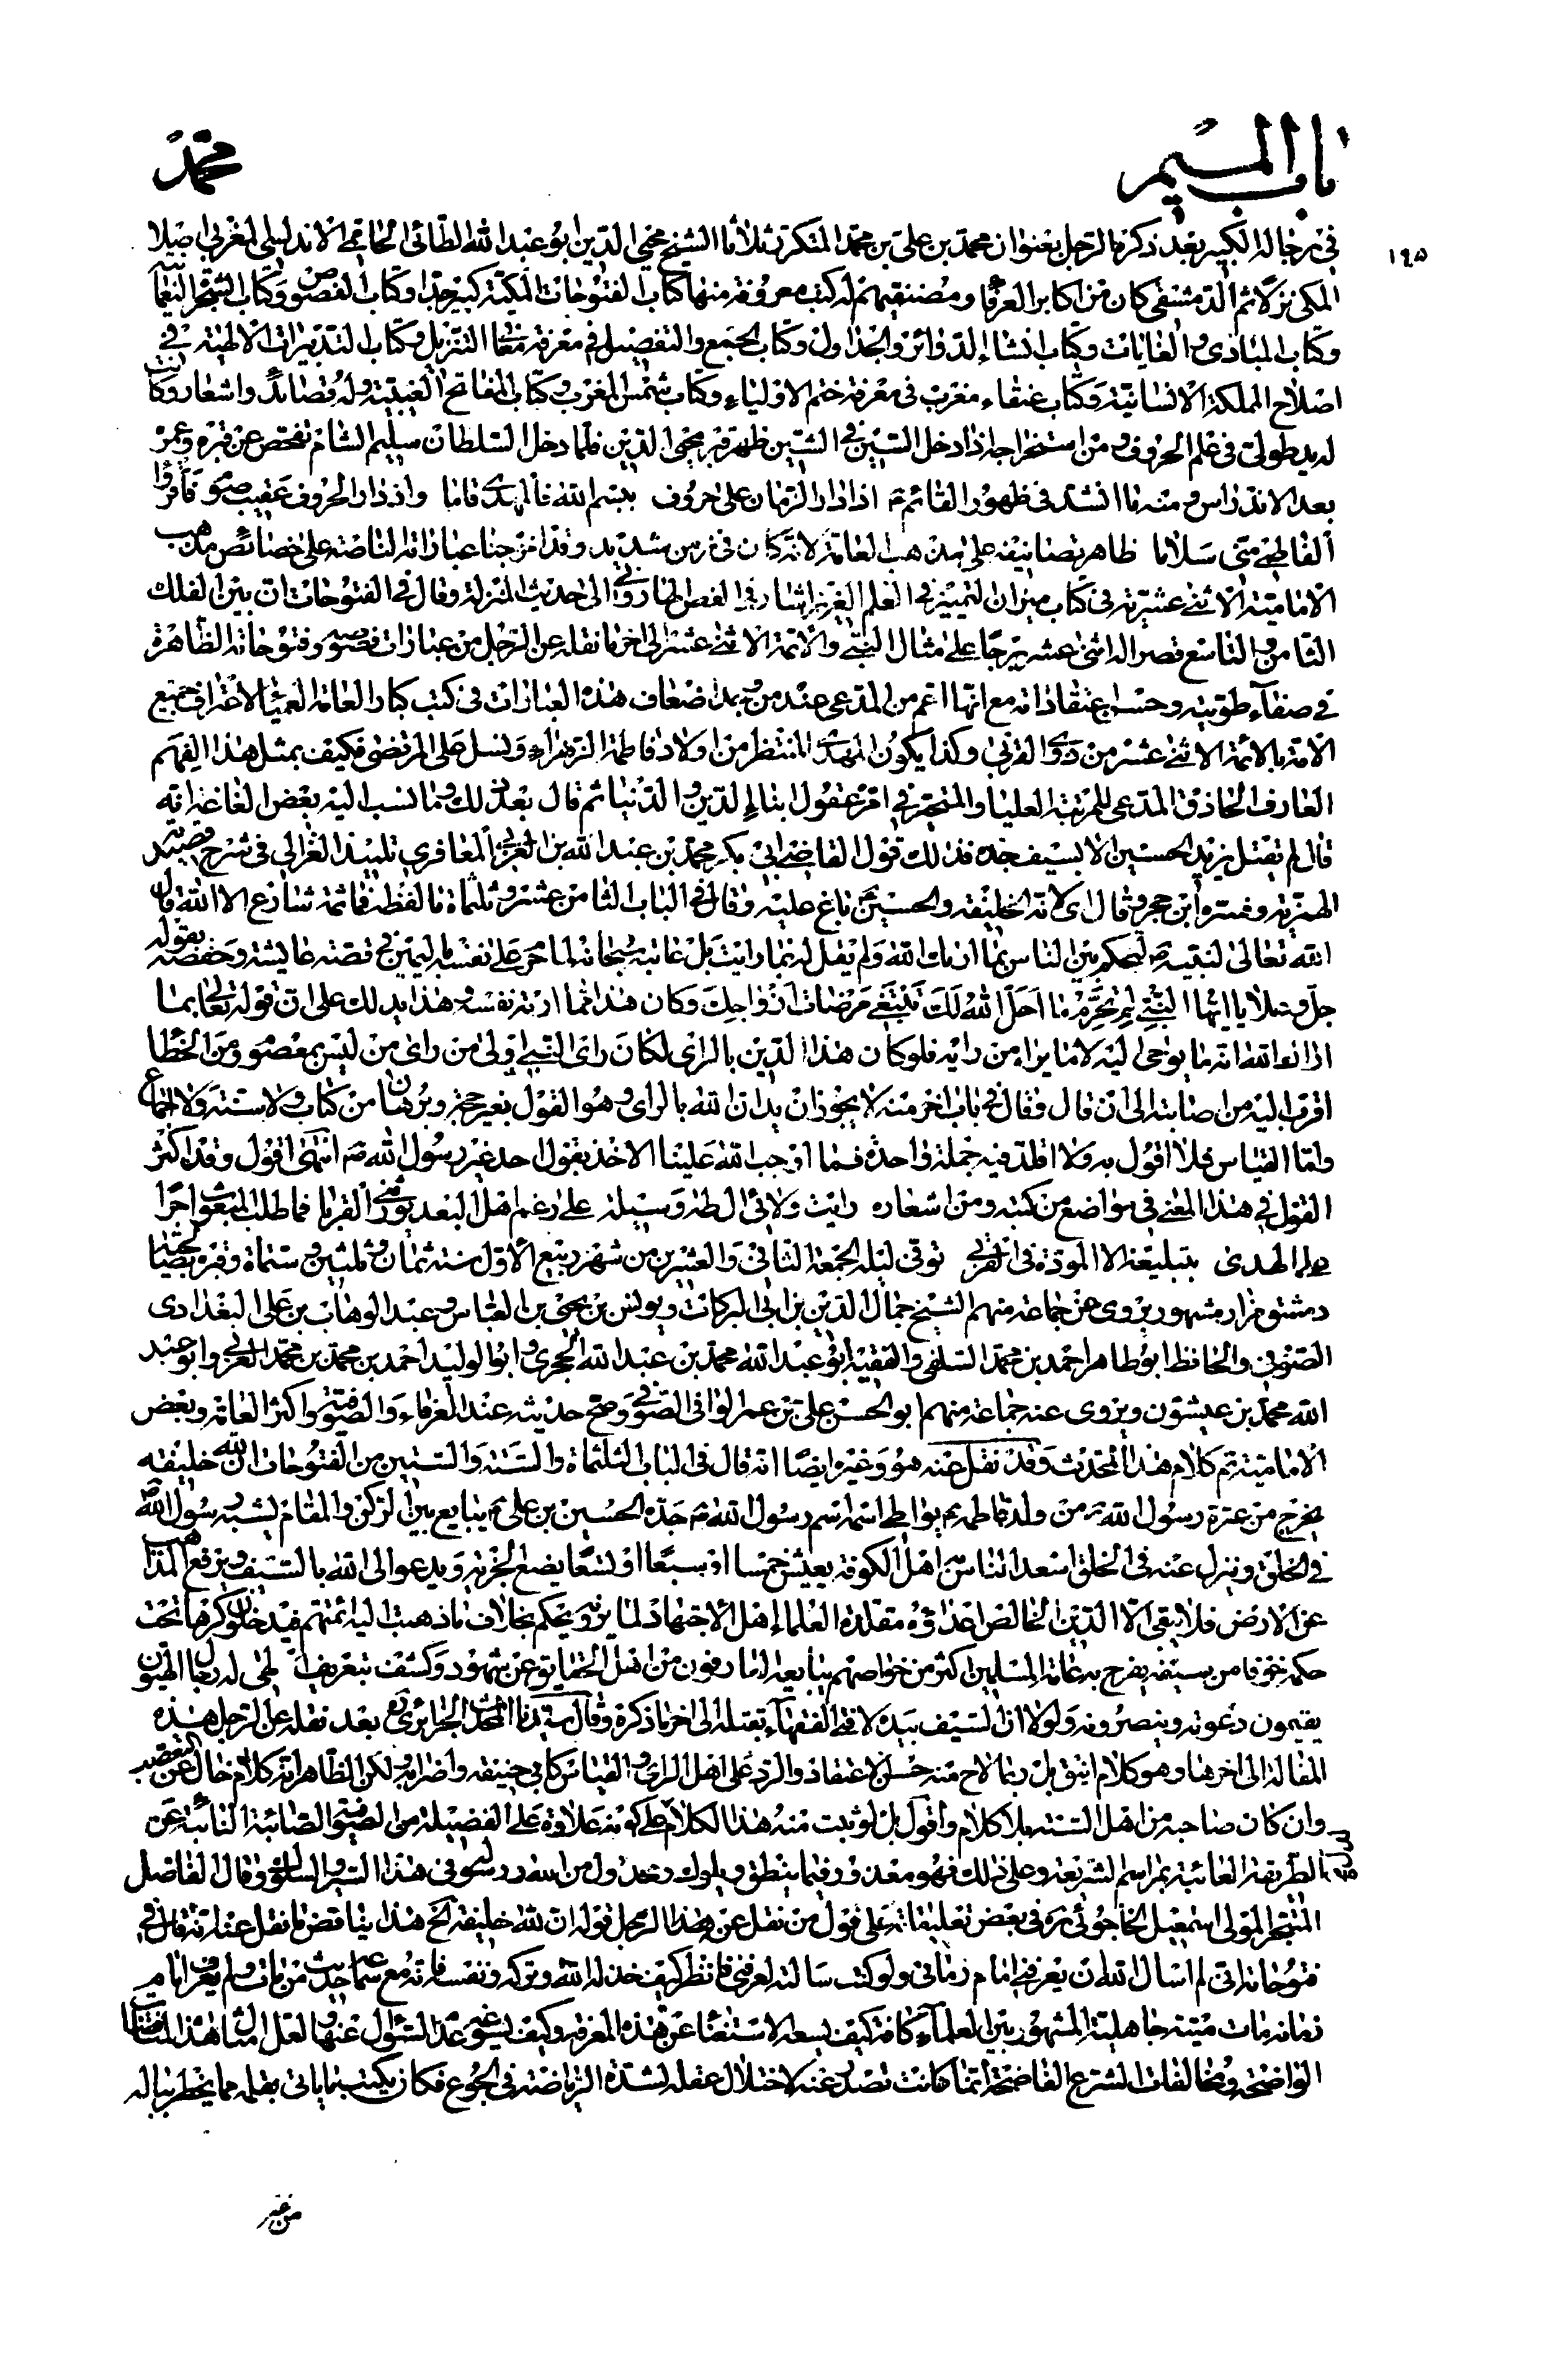 باب الميم
محمد
١٦٥
في رجاله الكبير بعد ذكره الرجل بعنوان محمد بن علي بن محمد المتكرر ثلاثا الشيخ محيي الدين ابو عبد الله الطائي الحاتمي الاندلسي المغربي اصلا
المكي نزلا ثم الدمشقي كان من اكابر العرفا ومصنفيهم له كتب معروفة منها كتاب الفتوحات المكية كبير جدا وكتاب الفصوص وكتاب الشجرة النعمانية
وكتاب المبادي والغايات وكتاب انشاء الدوائر والجداول وكتاب الجمع والتفصيل في معرفة معاني التنزيل وكتاب التدبيرات الالهية في
اصلاح المملكة الانسانية وكتاب عنقاء مغرب في معرفة ختم الاولياء وكتاب شمس المغرب وكتاب المفاتح الغيبية وله قصائد واشعار وكانت
له يد طولى في علم الحروف ومن استخراجه اذا دخل السين في الشين ظهر قبر محيي الدين فلما دخل السلطان سليم الشام تفحص عن قبره وعمره
بعد الاندراس ومنه ما انشد في ظهور القائم ع اذا دار الزمان على حروف ببسم الله فالمهدي قاما واذ دار الحروف عقيب صوم فاقرؤا
الفاطمي مني سلاما ظاهر تصانيفه على مذهب العامة لانه كان في زمن شديد وقد اخرجنا عباراته الناصة على خصائص مذهب
الامامية الاثنى عشرية في كتاب ميزان التمييز في العلم العزيز اشار في الفص الهاروني الى حديث المنزلة وقال في الفتوحات ان بين الفلك
الثامن والتاسع قصر اله اثنى عشر برجا على مثال النبي والائمة الاثنى عشر الى اخر ما نقله عن الرجل من عبارات فصوصه وفتوحاته الظاهرة
في صفاء طويته وحسن اعتقاداته مع انها اعم من المدعى عند من وجد اضعاف هذه العبارات في كتب كبار العامة العمياء لاعتراف جميع
الامة بالائمة الاثنى عشر من ذوي القربى وكذا يكون المهدي المنتظر من اولاد فاطمة الزهراء ونسل علي المرتضى فكيف بمثل هذا الفهيم
العارف الحاذق المدعي للمرتبة العليا والمتبحر في امر عقول ابناء الدين والدنيا ثم قال بعد ذلك ومما نسب اليه بعض الطاغة انه
قال لم يقتل يزيد الحسين الا بسيف جده فذلك قول القاضي ابي بكر محمد بن عبد الله بن العربي المعافري تلميذ الغزالي في شرح قصيدته
الهمزية وفسره ابن حجر وقال اى لانه الخليفة والحسين باغ عليه وقال في الباب الثامن عشر وثلثمائة ما لفظه فما ثمة شارع الا الله قال
الله تعالى لنبيه ص لتحكم بين الناس بما اراك الله ولم يقل له بما رايت بل عاتبه سبحانه لما حرم على نفسه باليمين في قصة عايشة وحفصة بقوله
جل وعلا يا ايها النبي لم تحرم ما احل الله لك تبتغي مرضات ازواجك وكان هذا مما ارته نفسه وهذا يدلك على ان قوله تعالى بما
اراك الله انه ما يوحى اليه لا ما يراه من رايه فلو كان هذا الدين بالراى لكان راى النبي اولى من راى من ليس بمعصوم ومن الخطا
اقرب اليه من اصابته الى ان قال وقال في باب اخر منه لا يجوز ان يدان الله بالراى وهو القول بغير حجة وبرهان من كتاب ولا سنة ولا اجماع
واما القياس فلا اقول به ولا اقلد فيه جملة واحدة فما اوجب الله علينا الاخذ بقول احد غير رسول الله ص انتهى اقول وقد اكثر
القول في هذا المعنى في مواضع من كتبه ومن اشعاره رايت ولائي ال طه وسيلة على رغم اهل البعد يورثني القربا فما طلب المبعوث اجرا
على الهدى بتبليغه الا المودة في القربى توفي ليلة الجمعة الثاني والعشرين من شهر ربيع الاول سنة ثمان وثلثين وستمائة وقبره بصالحية
دمشق مزار مشهور يروى عن جماعة منهم الشيخ جمال الدين بن ابي البركات ويونس بن يحيى بن العباس وعبد الوهاب بن علي البغدادي
الصوفي والحافظ ابو طاهر احمد بن محمد السلفي والفقيه ابو عبد الله محمد بن عبد الله الحجري وابو الوليد احمد بن محمد بن محمد العربي وابو عبد
الله محمد بن عيشون ويروى عنه جماعة منهم ابو الحسن علي بن عمر الواني الصوفي وصح حديثه عند العرفاء والصوفية واكثر العامة وبعض
الامامية تم كلام هذا المحدث وقد نقل عنه هو وغيره ايضا انه قال في الباب الثلثمائة والستة والستين من الفتوحات ان لله خليفة
يخرج من عترة رسول الله ص من ولد فاطمة ع يواطي اسمه اسم رسول الله ص جده الحسين بن علي ع يبايع بين الركن والمقام يشبه رسول الله ص
في الخلق وينزل عنه في الخلق اسعد الناس به اهل الكوفة يعيش خمسا او سبعا او تسعا يضع الجزية ويدعو الى الله بالسيف ويرفع المذاهب
عن الارض فلا يبقى الا الدين الخالص اعداؤه مقلدة العلماء اهل الاجتهاد لما يرونه يحكم بخلاف ما ذهبت اليه ائمتهم فيدخلون كرها تحت
حكمه خوفا من سيفه يفرح به عامة المسلمين اكثر من خواصهم يبايعه العارفون من اهل الحقايق عن شهود وكشف بتعريف الهي له رجال الهيون
يقيمون دعوته وينصرونه ولولا ان السيف بيده لافتى الفقهاء بقتله الى اخر ما ذكره وقال سيدنا المحدث الجزائري بعد نقله عن الرجل هذه
المقالة الى اخرها وهو كلام انيق بل ربما لاح منه حسن الاعتقاد والرد على اهل الراى والقياس كابي حنيفة واضرابه ولكن الظاهر انه كلام خال عن التعصب
وان كان صاحبه من اهل السنة بلا كلام واقول بل لو ثبت منه هذا الكلام على كونه علاوة على الفضيلة من الصوفية الصائبة النائية عن
الطريقة الغائبة بمراسم الشريعة وعلى ذلك فهو معذور فيما ينطق ويلوك وقال الفاضل
المتبحر المولى اسمعيل الخاجوئي ره في بعض تعليقاته على قول من نقل عن هذا الرجل قوله ان لله خليفة الخ هذا يناقض ما نقل عنه انه قال في
فتوحاته اني لم اسال الله ان يعرفني امام زماني ولو كنت سالته لعرفني فانظر كيف خذله الله وتركه ونفسه فانه مع سماعه حديث من مات ولم يعرف امام
زمانه مات ميتة جاهلية المشهور بين العلماء كافة كيف يسعه الاستغناء عن هذه المعرفة وكيف يسوغ عدم السؤال عنها ولعل امثال هذه المناقضات
الواضحة ومخالفات الشرع الفاضحة انما كانت تصدر عنه لاختلال عقله لشدة الرياضة في الجوع فكان يكتب ما ياتي بقلمه مما يخطر بباله
من غير